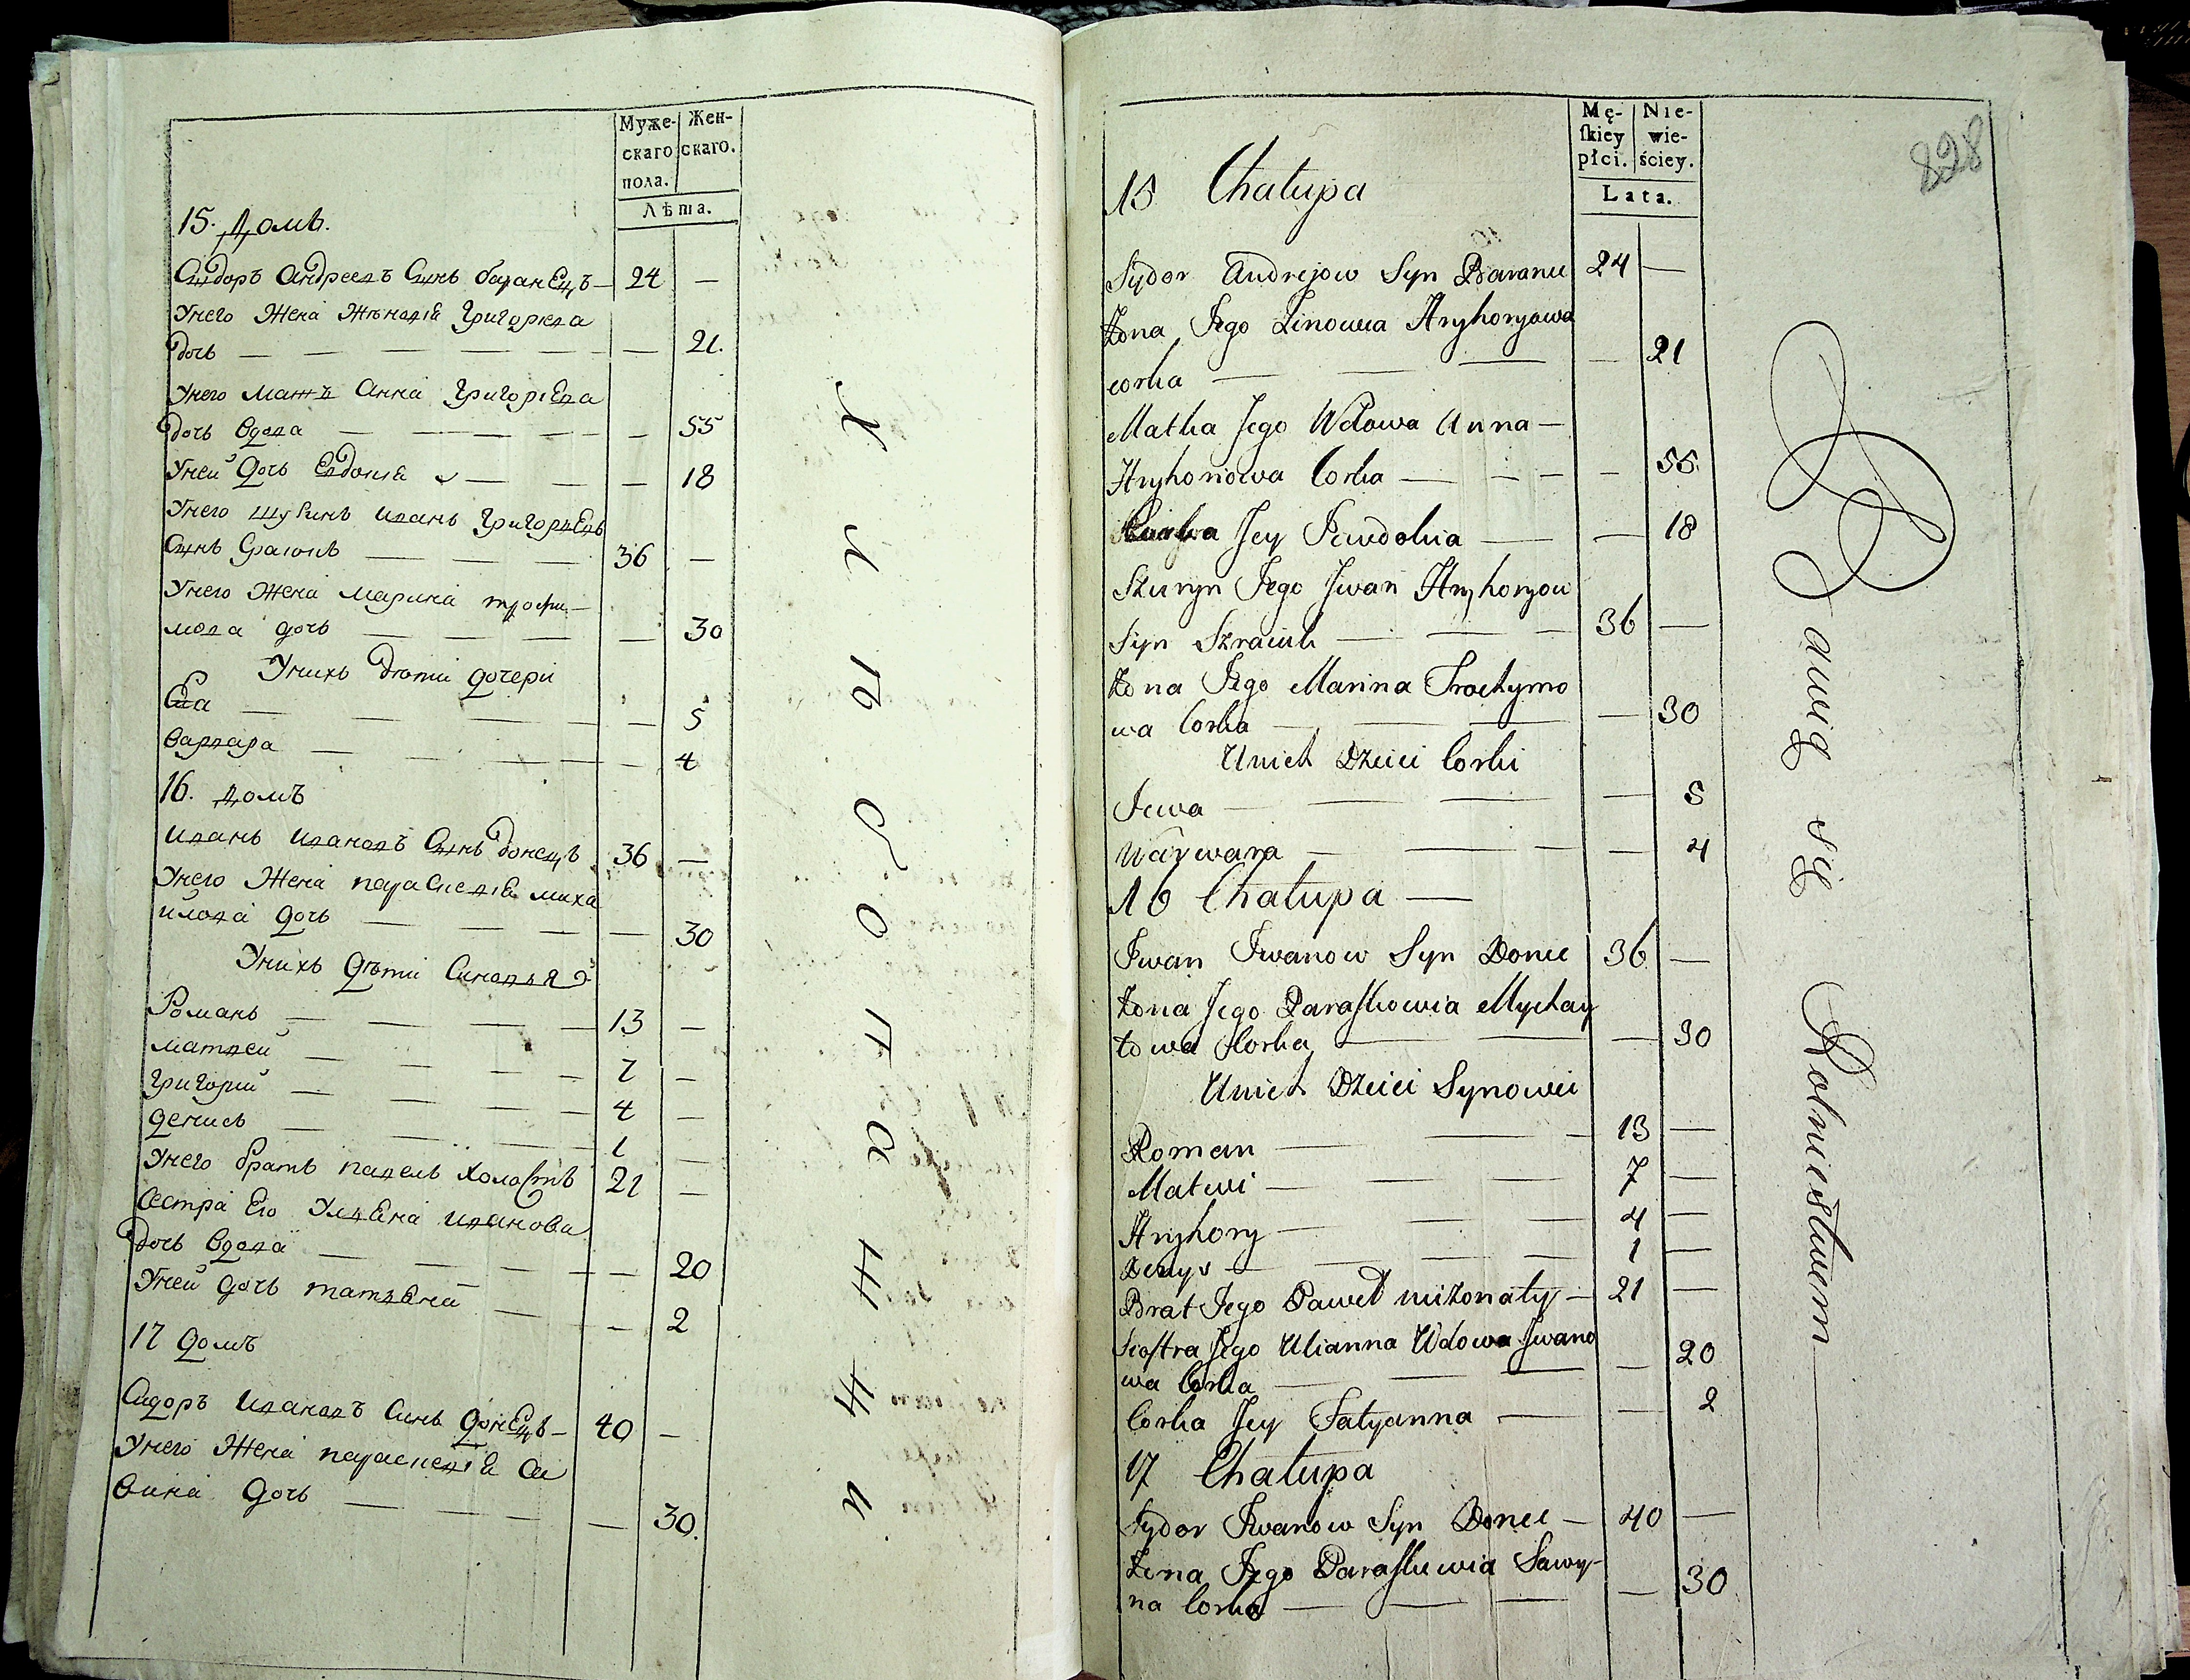 Муже-
скаго
пола.
Жен-
скаго.
Лѣта.
15. Домъ.
Сидоръ Андреевъ Синъ баранецъ — 24 —
Унего Жена Жѣновіа Григорева
дочь — — 21.
Унего мать Анна Григоріева
дочь вдова — — 55
Уней дочь Евдокіа — — 18
Унего шуринъ иванъ Григорьевъ
Синъ — 36 —
Унего Жена марина трофи-
мова дочь — — 30
Унихъ дѣти дочери
Ева — — 5
варвара — — 4
16. домъ
иванъ ивановъ Синъ донецъ 36 —
Унего Жена параскевіа миха
йлова дочь — — 30
Унихъ дѣти Синовья
Романъ — 13 —
матвей — 7 —
григорій — 4 —
денисъ — 1 —
Унего братъ павелъ холостъ 21 —
Сестра Его Ульяна иванова
дочь вдова — — 20
Уней дочь татьяна — — 2
17 домъ
Сидоръ ивановъ Синъ донецъ — 40 —
Унего Жена параскевіа Са
вина дочь — — 30.
Х
л
ѣ
б
о
п
а
ш
ц
и
Mę-
ſkiey
płci.
Nie-
wie-
ściey.
Lata.
828
15 Chałupa
Sydor Andrejow Syn Baraniec 24 —
Żona Jego Zinowia Hryhoryowa
corka — — 21
Matka Jego Wdowa Anna —
Hryhoriowa Corka — — 55.
Corka Jey Jewdokia — — 18
Szuryn Jego Jwan Hryhoryow
Syn — 36 —
Żona Jego Marina Trochymo
wa Corka — — 30
Unich Dzieci Corki
Jewa — — 5
Warwara — — 4
16 Chałupa —
Jwan Jwanow Syn Doniec 36 —
Żona Jego Paraſkowia Mychay
łowa Corka — — 30
Unich Dzieci Synowie
Roman — 13 —
Matwi — 7 —
Hryhory — 4 —
Denys — 1 —
Brat Jego Paweł nieżonaty — 21 —
Sioſtra Jego Ulianna Wdowa Jwano
wa Corka — — 20
Corka Jey Tatyanna — — 2
17 Chałupa
Sydor Jwanow Syn Doniec — 40 —
Żona Jego Paraſkewia Sawy-
na Corka — — 30
Bawią się Rolnictwem —